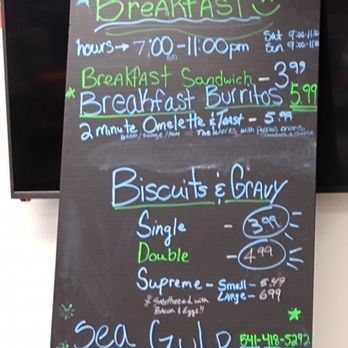 Breakfast
hours → 7:00 am - 11:00pm
Sat 9:00-11:00
Sun 9:00-11:00
Breakfast Sandwich - 3.99
Breakfast Burritos 5.99
2 minute Omelette & Toast - 5.99
Biscuits & Gravy
Single - 3.99
Double - 4.99
Supreme - Small - 5.49
Large - 6.99
* Smothered with
Bacon & Eggs!!
Sea Gulp
541-418-5292